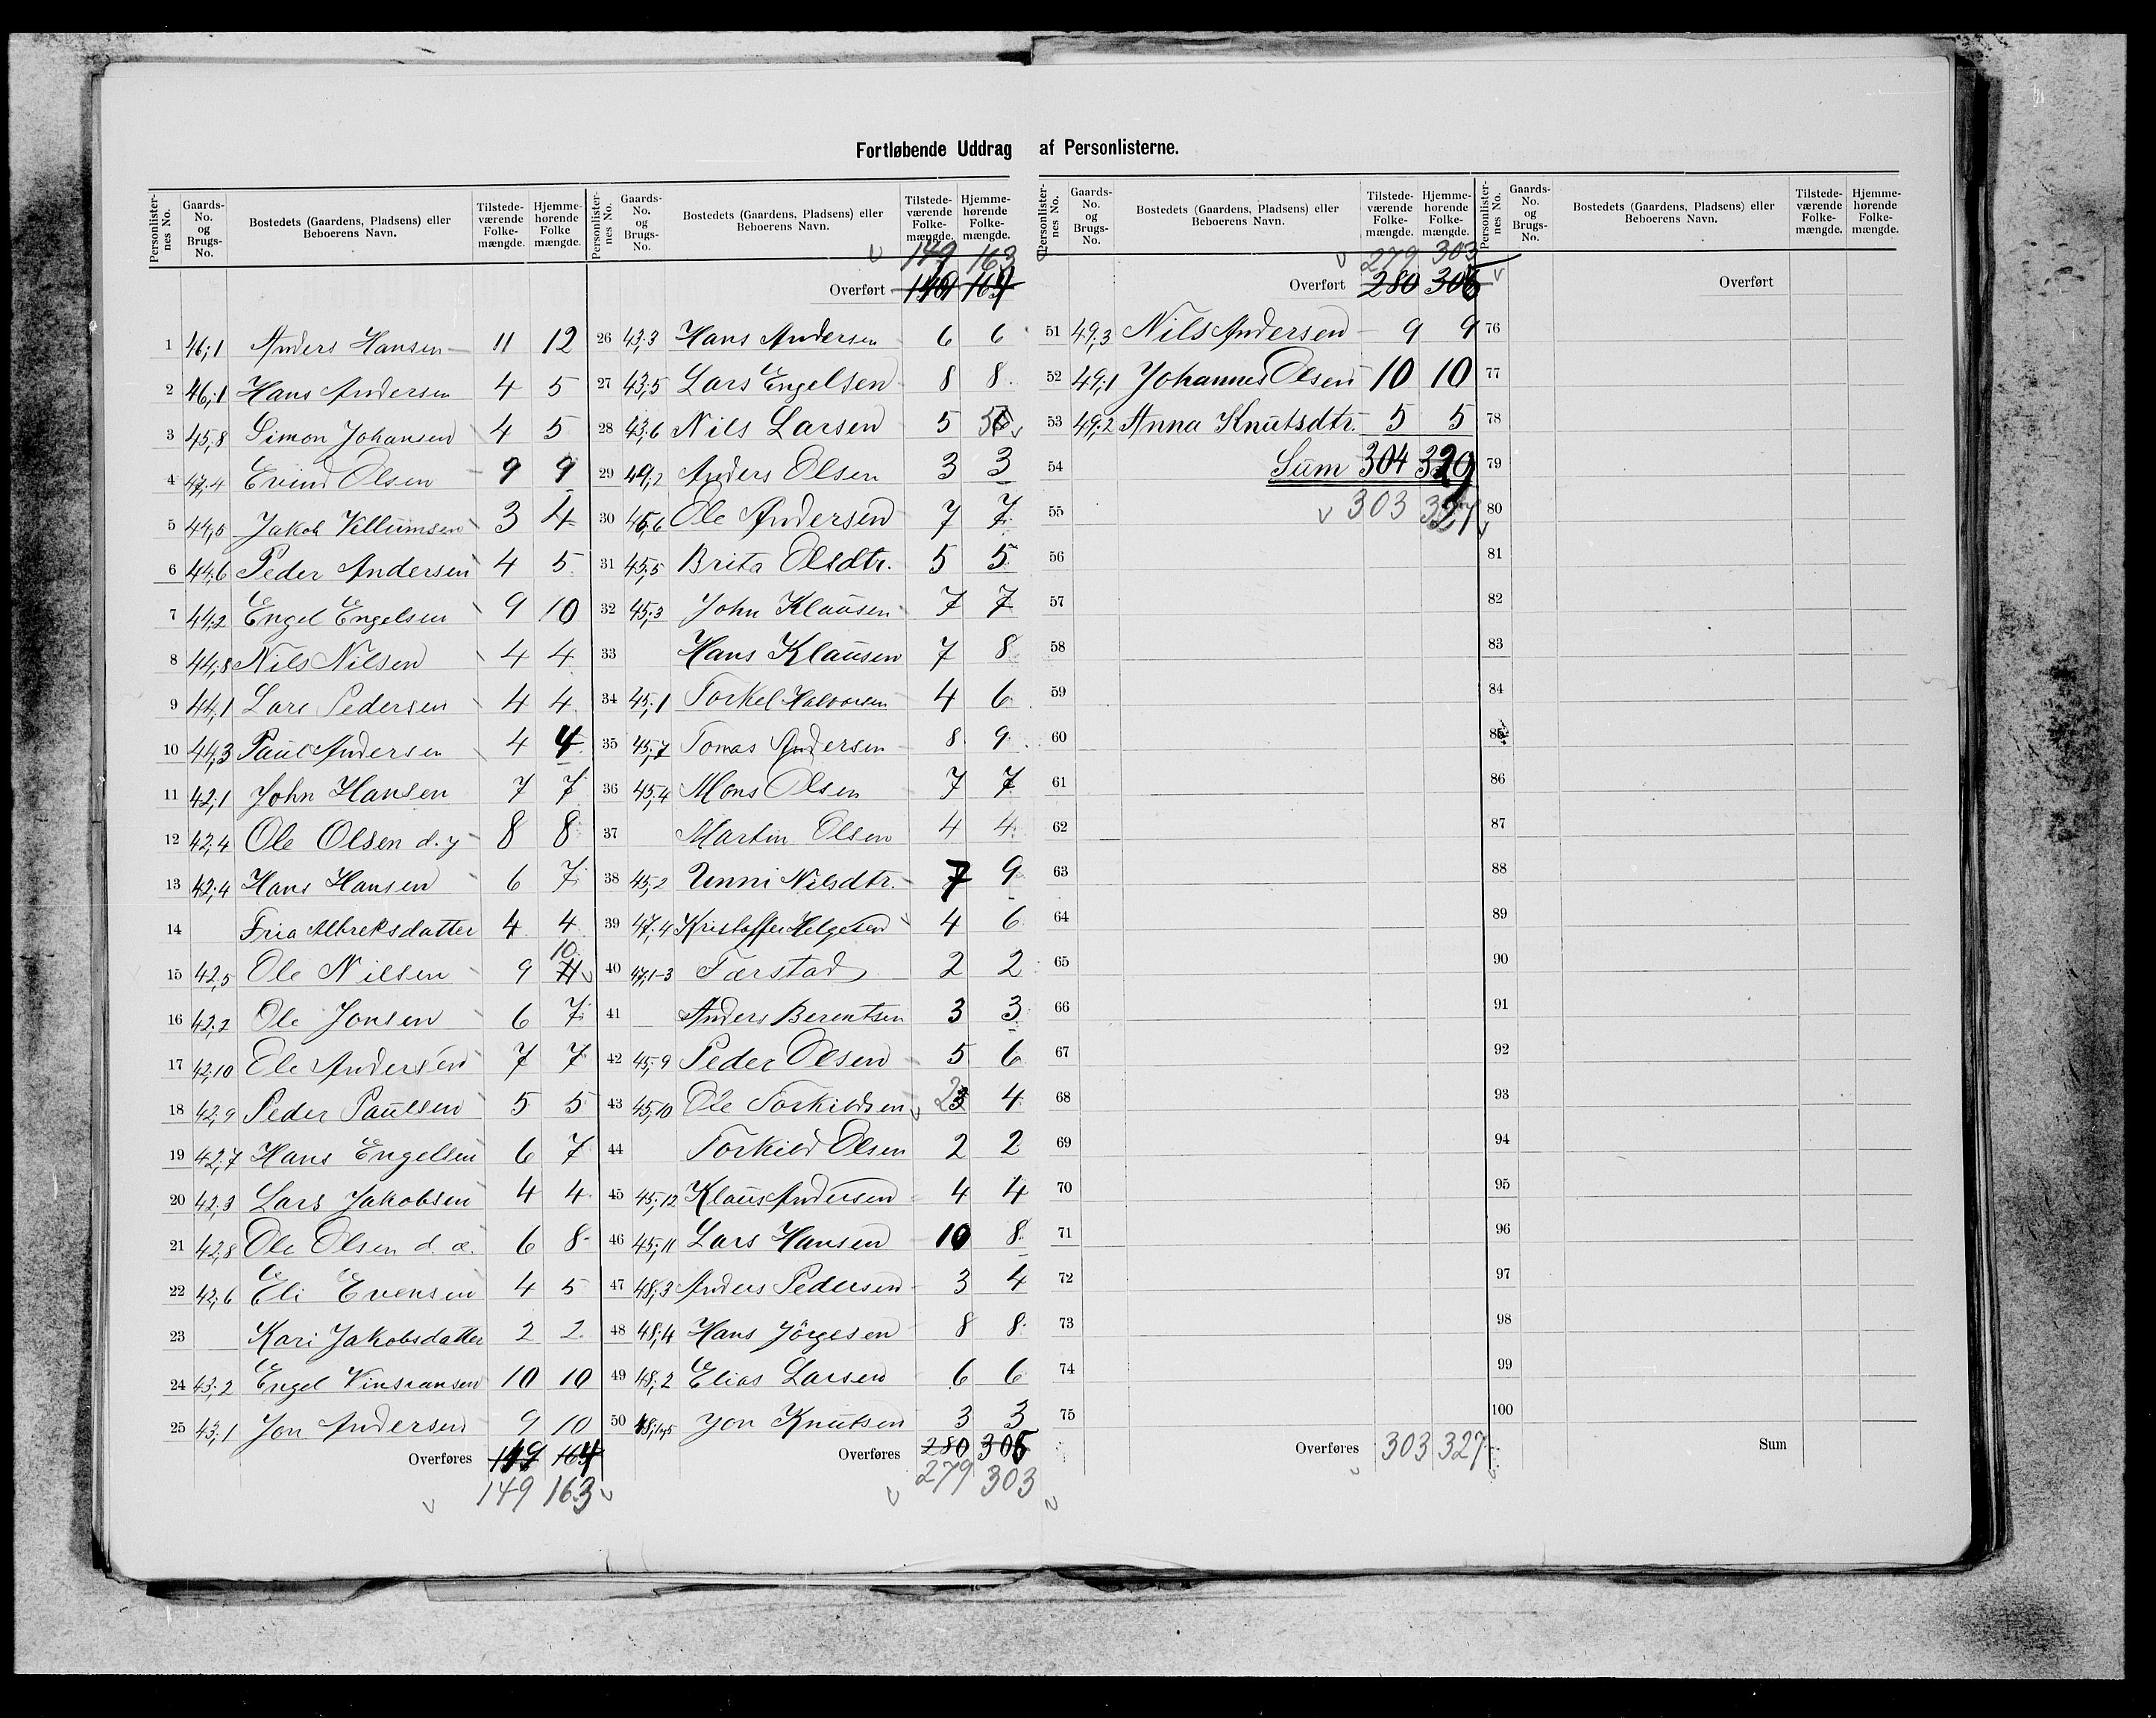 Fortløbende Uddrag af Personlisterne.
Personlisternes No. Gaards-No. og Brugs-No. Bostedets (Gaardens, Pladsens) eller Beboerens Navn. Tilstedeværende Folkemængde. Hjemmehørende Folkemængde.
1 46,1 Anders Hansen 11 12
2 46,1 Hans Andersen 4 5
3 45,8 Simon Johansen 4 5
4 47,4 Evind Olsen 9 9
5 44,5 Jakob Villumsen 3 4
6 44,6 Peder Andersen 4 5
7 44,2 Engel Engelsen 9 10
8 44,8 Nils Nilsen 4 4
9 44,1 Lars Pedersen 4 4
10 44,3 Paul Andersen 4 4
11 42,1 John Hansen 7 7
12 42,4 Ole Olsen d.y 8 8
13 42,4 Hans Hansen 6 7
14 Albreksdatter 4 4
15 42,5 Ole Nilsen 9 10
16 42,2 Ole Jonsen 6 7
17 42,10 Ole Andersen 7 7
18 42,9 Peder Paulsen 5 5
19 42,7 Hans Engelsen 6 7
20 42,3 Lars Jakobsen 4 4
21 42,8 Ole Olsen d. æ. 6 8
22 42,6 Eli Evensen 4 5
23 Kari Jakobsdatter 2 2
24 43,2 Engel 10 10
25 43,1 Jon Andersen 9 10
Overføres 164
149 163
Personlisternes No. Gaards-No. og Brugs-No. Bostedets (Gaardens, Pladsens) eller Beboerens Navn. Tilstedeværende Folkemængde. Hjemmehørende Folkemængde.
149 163
Overført 164
26 43,3 Hans Andersen 6 6
27 43,5 Lars Engelsen 8 8
28 43,6 Nils Larsen 5 5
29 49,2 Anders Olsen 3 3
30 45,6 Ole Andersen 7 7
31 45,5 Brita Olsdtr. 5 5
32 45,3 John Klausen 7 7
33 Hans Klausen 7 8
34 45,1 Torkel Halvorsen 4 6
35 45,7 Tomas Andersen 8 9
36 45,4 Mons Olsen 7 7
37 Martin Olsen 4 4
38 45,2 Unni Nilsdtr. 7 9
39 47,4 Kristoffer Helgesen 4 6
40 47,1-3 Tærstad 2 2
41 Anders Berentsen 3 3
42 45,9 Peder Olsen 5 6
43 45,10 Ole Torkildsen 2 4
44 Torkild Olsen 2 2
45 45,12 Klaus Andersen 4 4
46 45,11 Lars Hansen 10 8
47 48,3 Anders Pedersen 3 4
48 48,4 Hans Jörgesen 8 8
49 48,2 Elias Larsen 6 6
50 Jon Knutsen 3 3
Overføres 280 305
279 303
Personlisternes No. Gaards-No. og Brugs-No. Bostedets (Gaardens, Pladsens) eller Beboerens Navn. Tilstedeværende Folkemængde. Hjemmehørende Folkemængde.
279 303
Overført 280 305
51 49,3 Nils Andersen 9 9
52 49,1 Johannes Olsen 10 10
53 49,2 Anna Knutsdtr. 5 5
54 Sum 304 329
55 303 327
56
57
58
59
60
61
62
63
64
65
66
67
68
69
70
71
72
73
74
75
Overføres 303 327
Personlisternes No. Gaards-No. og Brugs-No. Bostedets (Gaardens, Pladsens) eller Beboerens Navn. Tilstedeværende Folkemængde. Hjemmehørende Folkemængde.
Overført
76
77
78
79
80
81
82
83
84
85
86
87
88
89
90
91
92
93
94
95
96
97
98
99
100
Sum